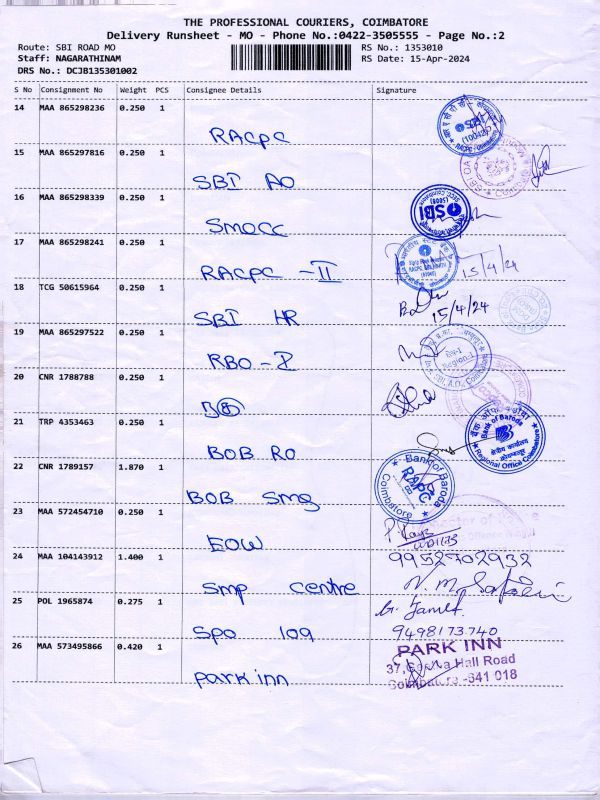 THE PROFESSIONAL COURIERS, COIMBATORE
Delivery Runsheet - MO - Phone No.:0422-3505555 - Page No.:2
Route: SBI ROAD MO RS No.: 1353010
Staff: NAGARATHINAM RS Date: 15-Apr-2024
DRS No.: DCJB135301002
S No Consignment No Weight PCS Consignee Details Signature
14 MAA 865298236 0.250 1
RACPC
15 MAA 865297816 0.250 1
SBI AO
16 MAA 865298339 0.250 1
SBI
SMOCC
17 MAA 865298241 0.250 1
RACPC - II 15/4/24
18 TCG 50615964 0.250 1
15/4/24
SBI HR
19 MAA 865297522 0.250 1
Region-I
RBO - I
20 CNR 1788788 0.250 1
21 TRP 4353463 0.250 1
Bank of Baroda
Regional Office Coimbatore
BOB RO
22 CNR 1789157 1.870 1
Bank of Baroda
RAPC
Coimbatore
BOB SMG
23 MAA 572454710 0.250 1
EOW
24 MAA 104143912 1.400 1
9952702932
SMP centre
25 POL 1965874 0.275 1
G. Jamet
SPO 109 9498173740
26 MAA 573495866 0.420 1
PARK INN
37, Geetha Hall Road
Coimbatore -641 018
Park inn